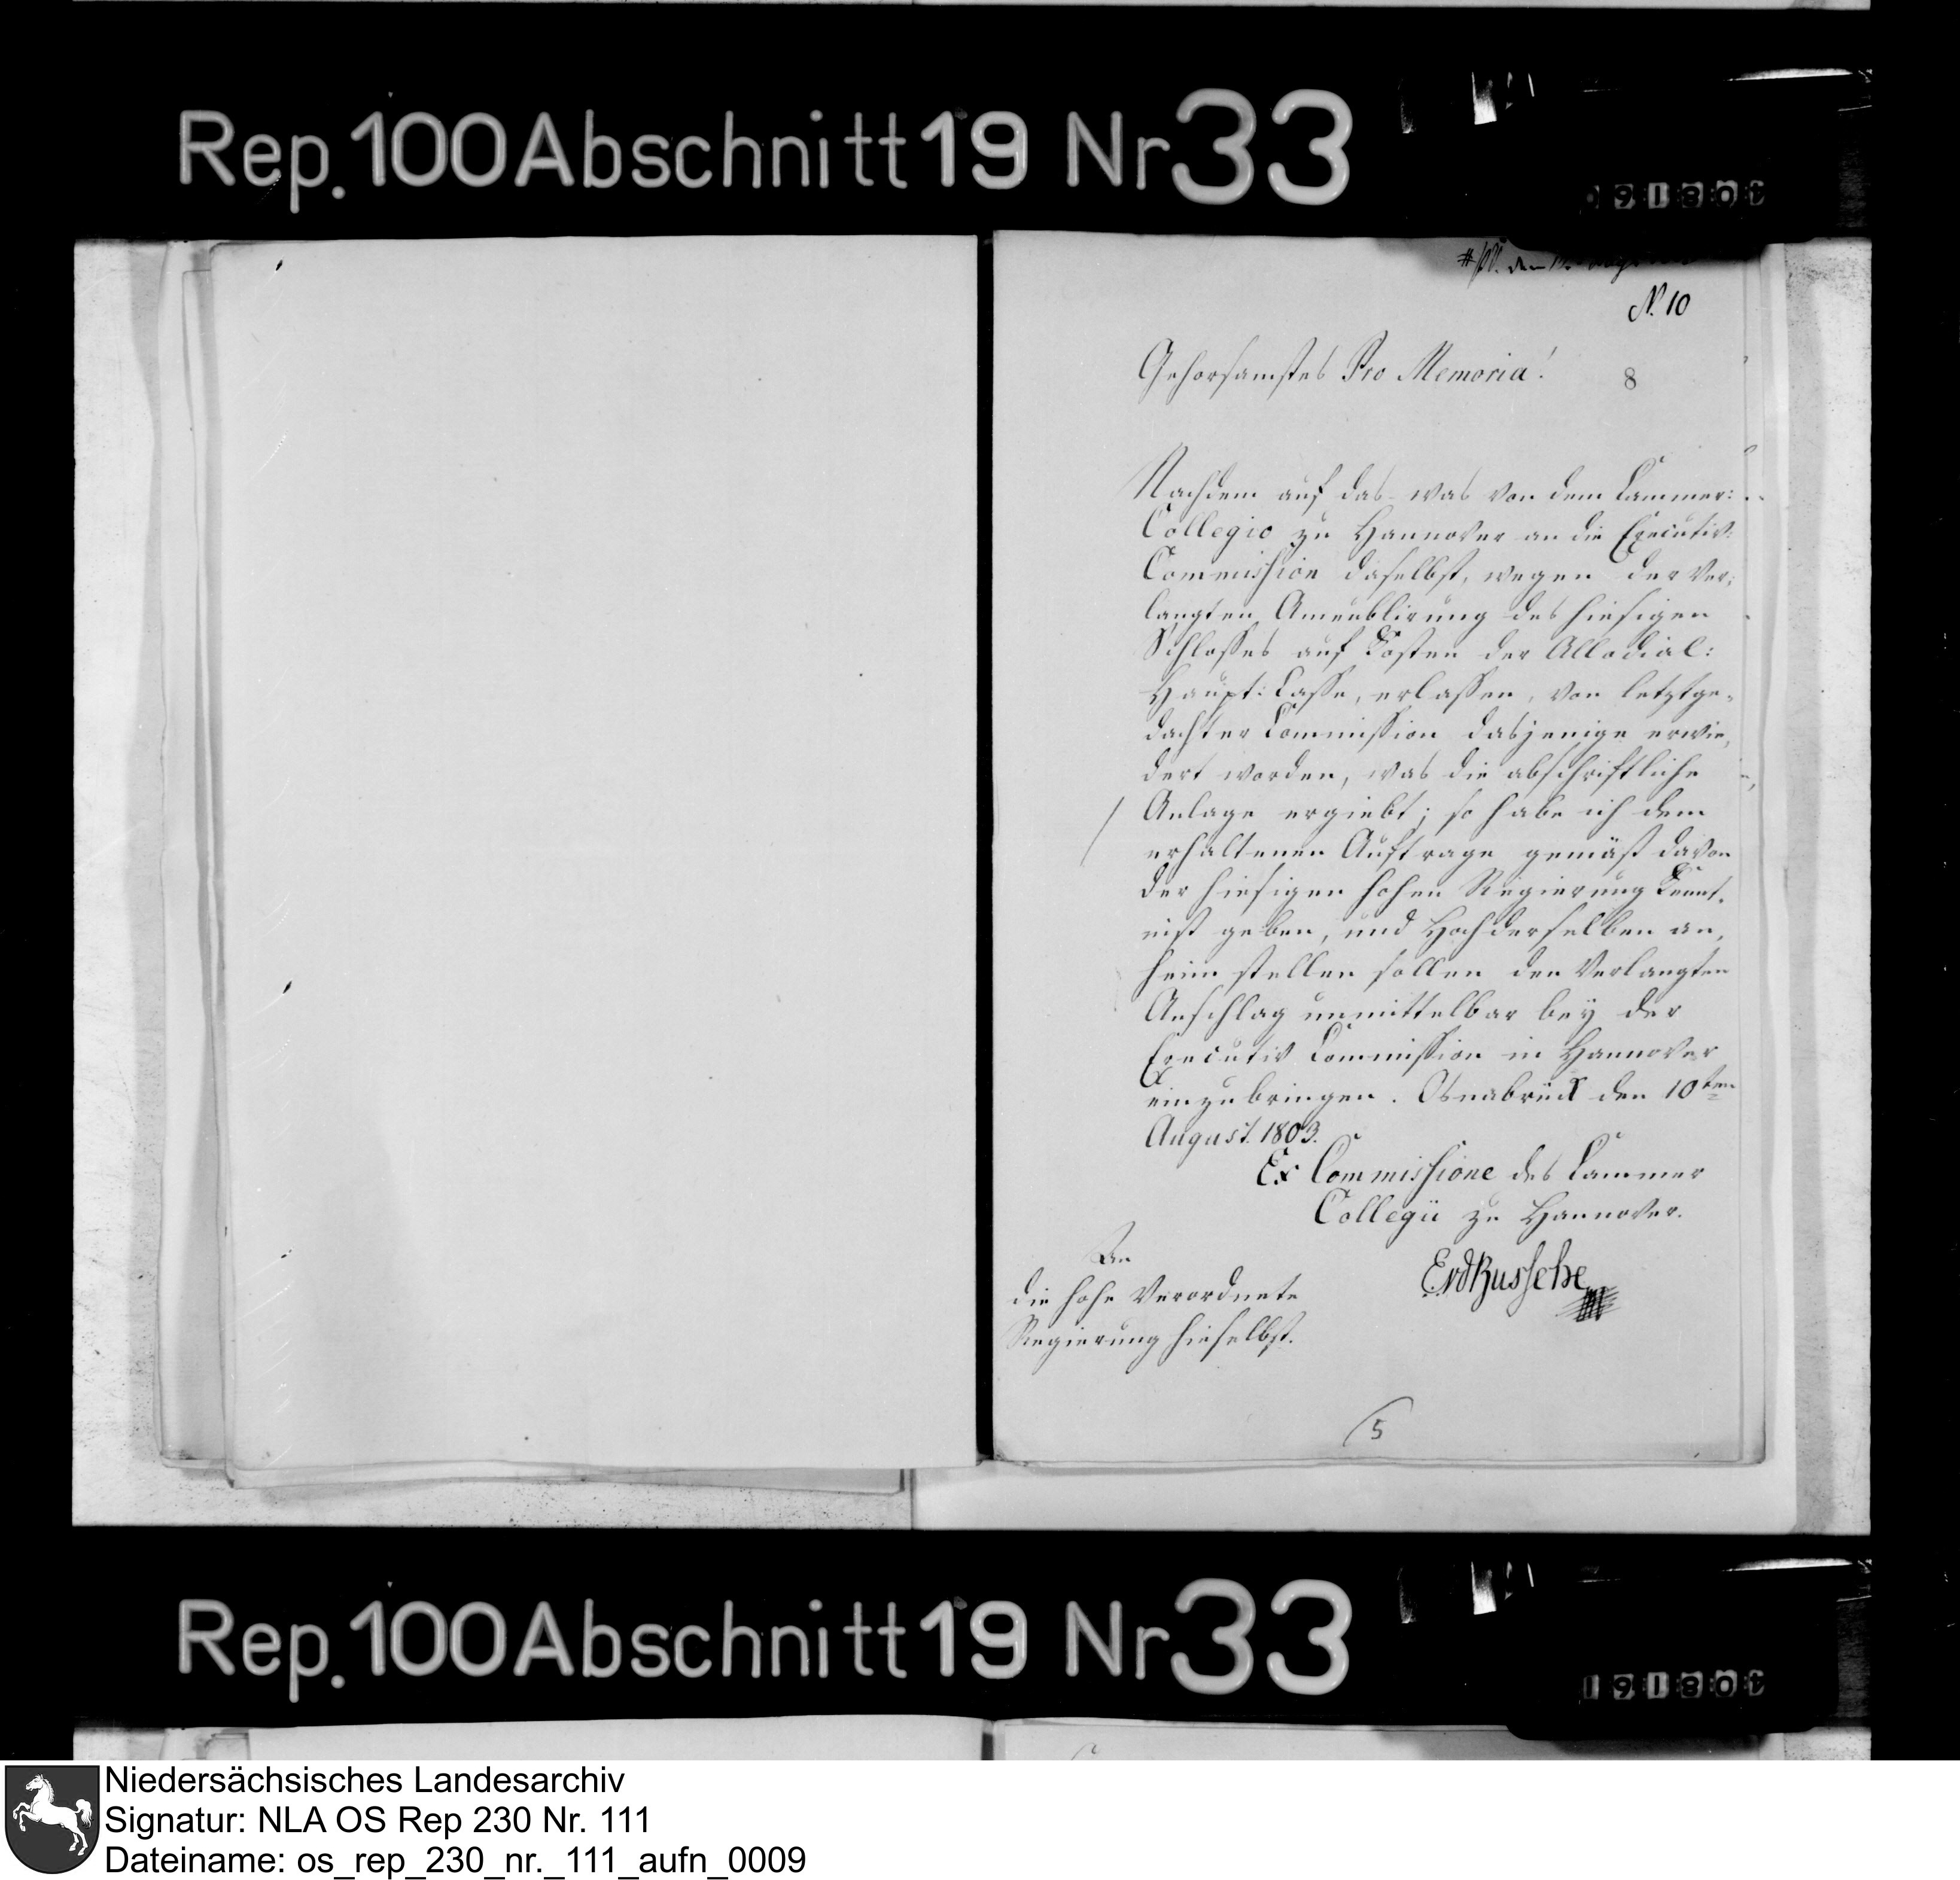 Rep. 100 Abschnitt 19 Nr 33
N. 10
Gehorsamstes Pro Memoria!
8
Nachdem auf das was von dem Cammer:
Collegio zu Hannover an die Executiv:
Commission daselbst, wegen der ver,
langten Ameublirung des hiesigen
Schlosses auf Kosten der Allodial:
Haupt: Casse, erlassen, von letztge,
dachter Commission dasjenige erwie,
dert worden, was die abschriftliche
Anlage ergiebt; so habe ich dem
erhaltenen Auftrage gemäß davon
der hiesigen hohen Regierung Kennt,
niß geben, und Hochderselben an,
heim stellen sollen den Verlangten
Anschlag unmittelbar bey der
Executiv Commission in Hannover
einzubringen. Osnabrück den 10ten
August. 1803.
Ex Commissione des Cammer
Collegii zu Hannover.
ErdBussche
An
die hohe Verordnete
Regierung hieselbst.
5
Rep. 100 Abschnitt 19 Nr 33
Niedersächsisches Landesarchiv
Signatur: NLA OS Rep 230 Nr. 111
Dateiname: os_rep_230_nr._111_aufn_0009